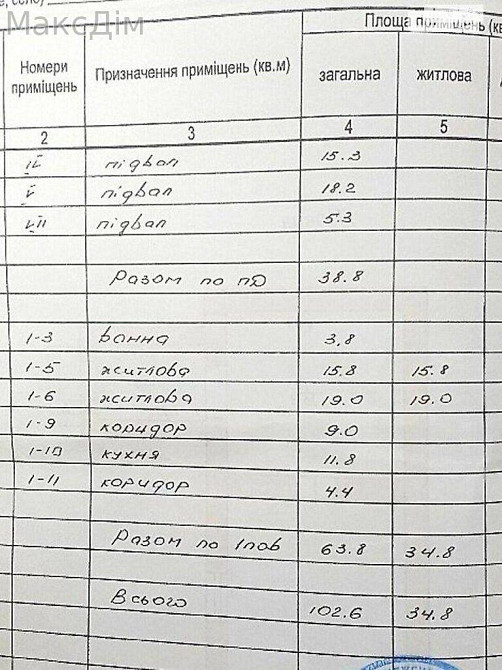 МаксДім
Площа приміщень (кв
Номери приміщень Призначення приміщень (кв.м) загальна житлова
2 3 4 5
IV підвал 15.3
V підвал 18.2
VII підвал 5.3
Разом по пд 38.8
1-3 ванна 3.8
1-5 житлова 15.8 15.8
1-6 житлова 19.0 19.0
1-9 коридор 9.0
1-10 кухня 11.8
1-11 коридор 4.4
Разом по 1пов 63.8 34.8
Всього 102.6 34.8